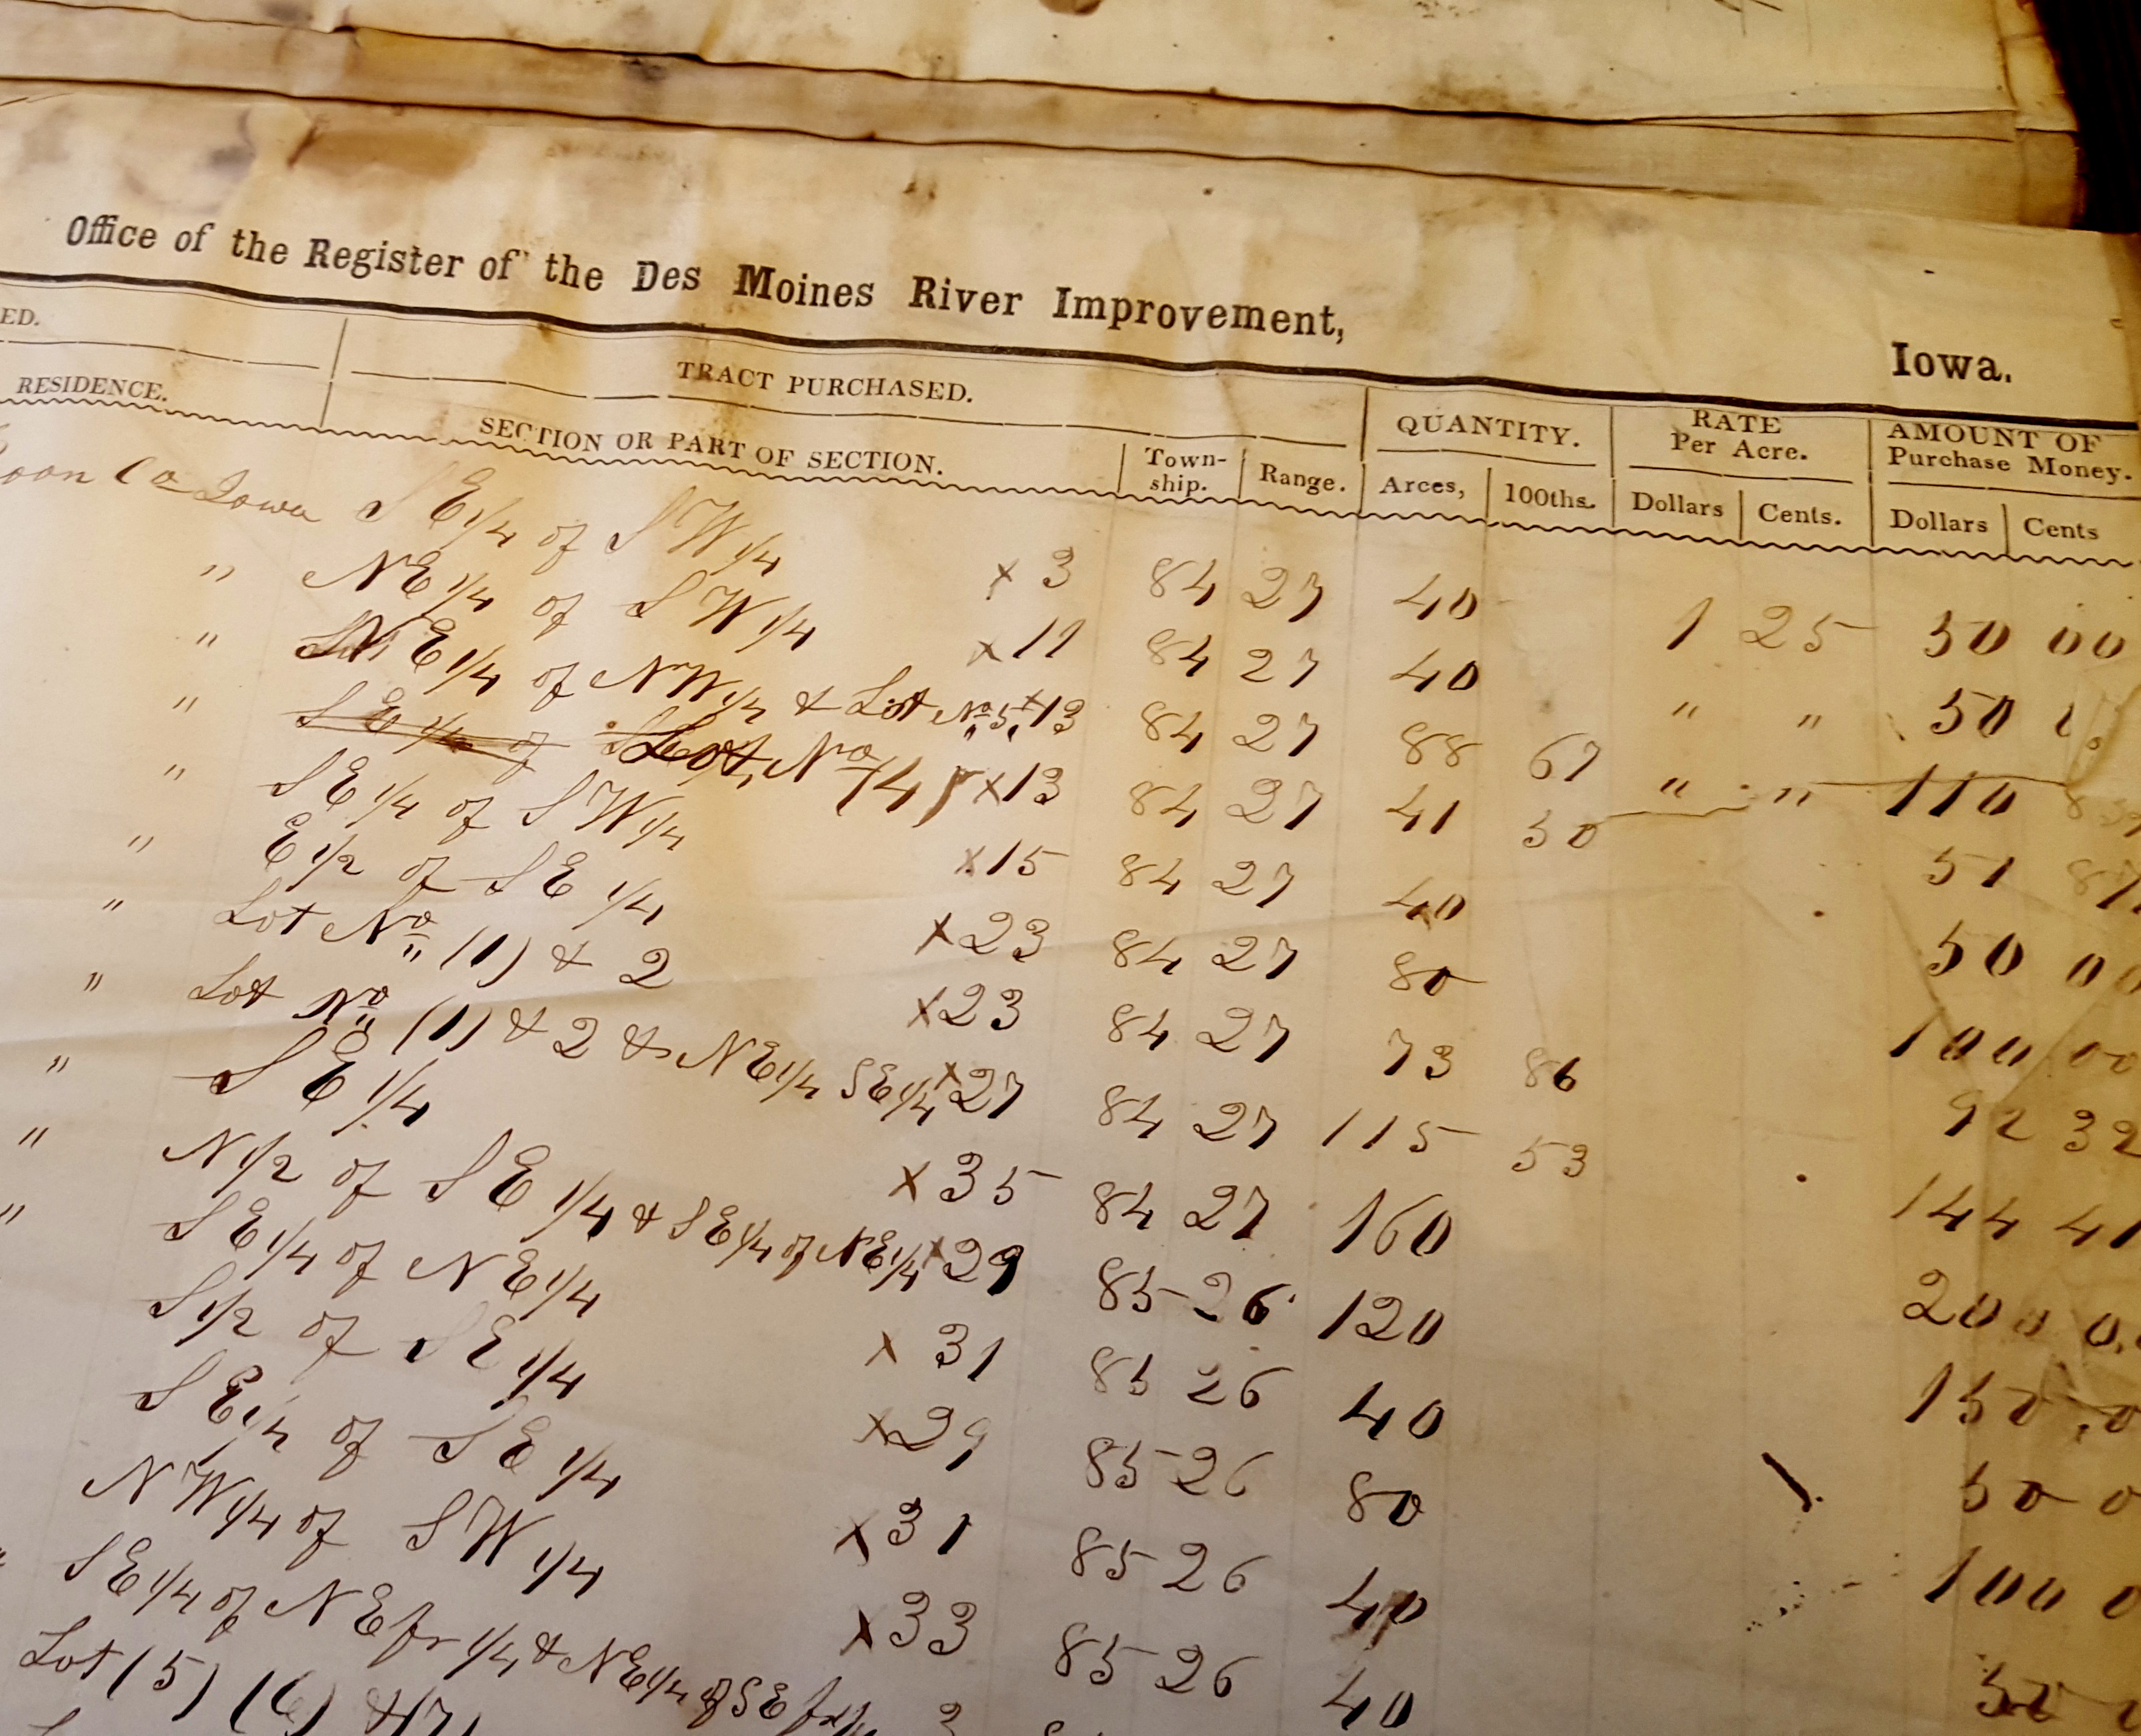 Office of the Register of the Des Moines River Improvement, Iowa.
ED. TRACT PURCHASED. QUANTITY. RATE Per Acre. AMOUNT OF Purchase Money.
RESIDENCE. SECTION OR PART OF SECTION. Town-ship. Range. Arces, 100ths. Dollars Cents. Dollars Cents
oon Co Iowa S E 1/4 of S W 1/4 x 3 84 27 40 1 25 50 00
" N E 1/4 of S W 1/4 x 11 84 27 40 " " 50
" N E 1/4 of N W 1/4 & Lot No 5 x 13 84 27 88 67 " " 110 8
" S E 1/4 of Lot No (4) x 13 84 27 41 50 51 87
" S E 1/4 of S W 1/4 x 15 84 27 40 50 00
" E 1/2 of S E 1/4 x 23 84 27 80 100 00
" Lot No (1) & 2 x 23 84 27 73 86 92 32
" Lot No (1) & 2 & N E 1/4 S E 1/4 x 27 84 27 115 53 144 41
" S E 1/4 x 35 84 27 160 200 0
" N 1/2 of S E 1/4 & S E 1/4 of N E 1/4 x 29 85 26 120 150 0
" S E 1/4 of N E 1/4 x 31 85 26 40 50 0
S 1/2 of S E 1/4 x 29 85 26 80 100 0
S E 1/4 of S E 1/4 x 31 85 26 40 50
N W 1/4 of S W 1/4 x 33 85 26 40
" S E 1/4 of N E fr 1/4 & N E 1/4 of S E fr
Lot (5) (6) & (7)